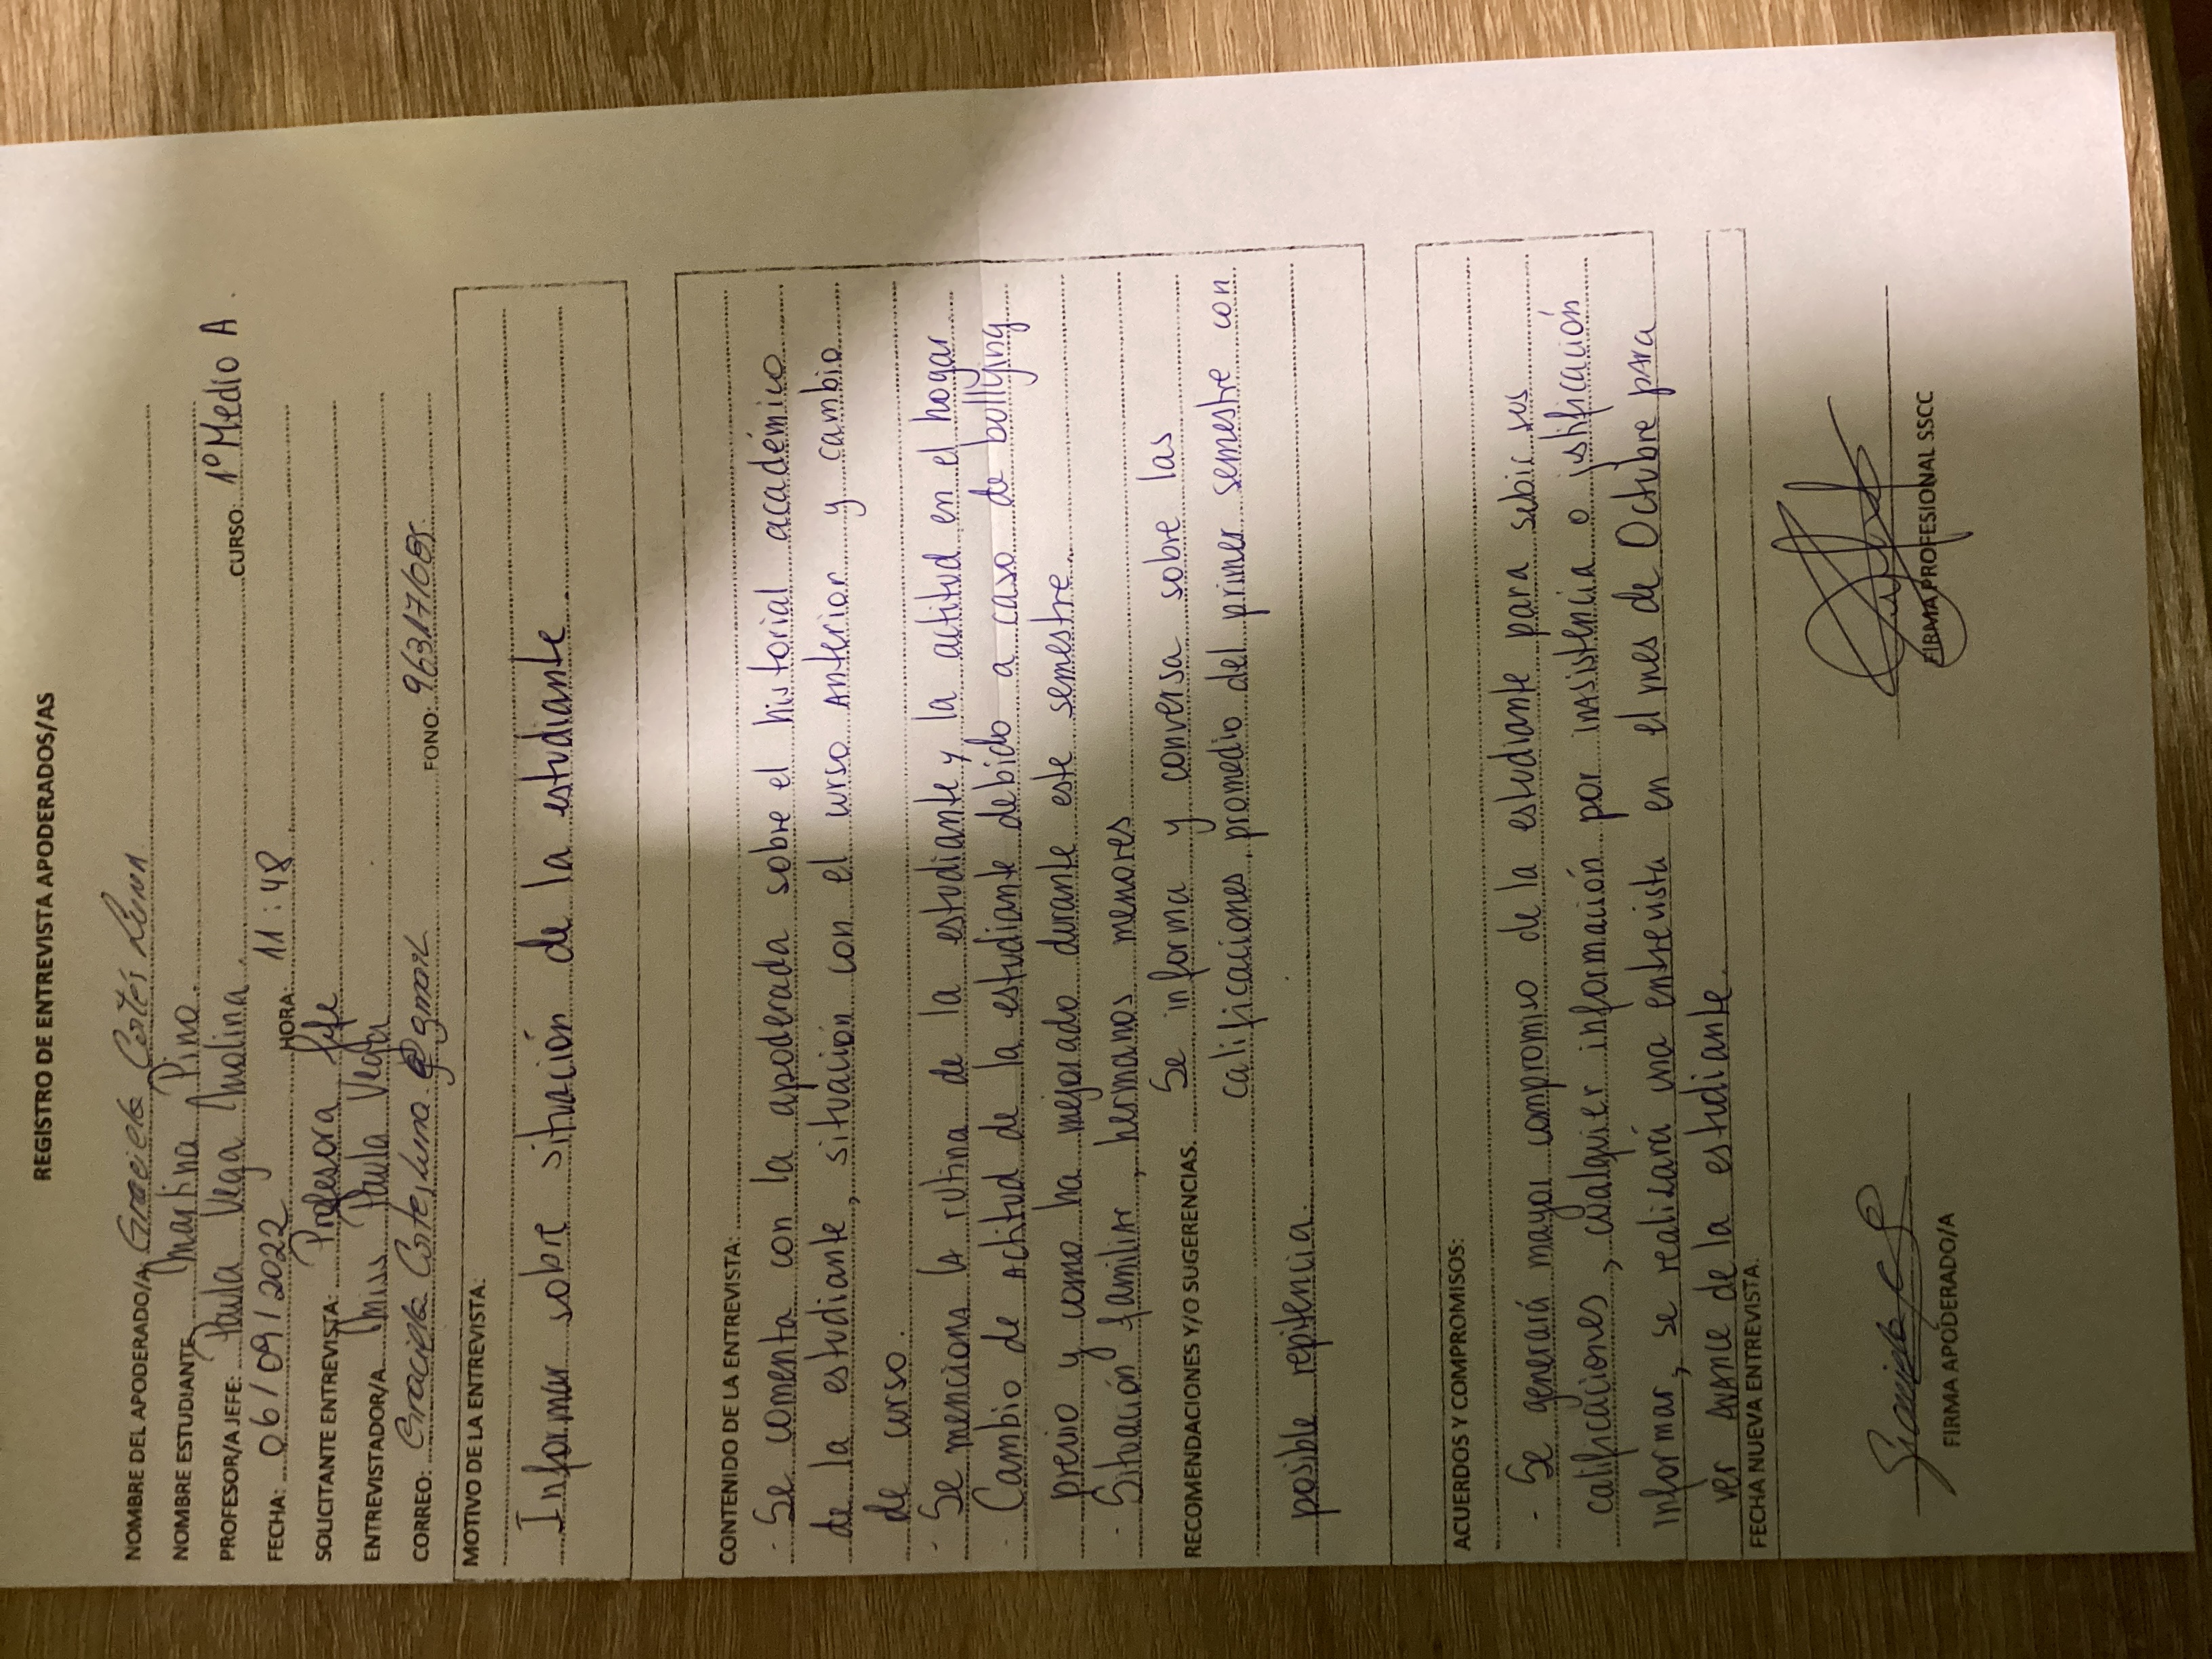 REGISTRO DE ENTREVISTA APODERADOS/AS
NOMBRE DEL APODERADO/A Graciela Cortés Luna
NOMBRE ESTUDIANTE Martina Pino.
PROFESOR/A JEFE: Paula Vega Molina. CURSO: 1º Medio A
FECHA: 06/09/2022 HORA: 11:48
SOLICITANTE ENTREVISTA: Profesora Jefe
ENTREVISTADOR/A Miss Paula Vega
CORREO: FONO:
MOTIVO DE LA ENTREVISTA:
Informar sobre situación de la estudiante
CONTENIDO DE LA ENTREVISTA:
- Se comenta con la apoderada sobre el historial académico
de la estudiante, situación con el curso anterior y cambio
de curso.
- Se menciona la rutina de la estudiante y la actitud en el hogar
- Cambio de actitud de la estudiante debido a caso de bullying
previo y como ha mejorado durante este semestre.
- Situación familiar, hermanos menores
RECOMENDACIONES Y/O SUGERENCIAS. Se informa y conversa sobre las
calificaciones, promedio del primer semestre con
posible repitencia.
ACUERDOS Y COMPROMISOS:
- Se generará mayor compromiso de la estudiante para subir sus
calificaciones, cualquier información por inasistencia o justificación
informar, se realizará una entrevista en el mes de Octubre para
ver avance de la estudiante.
FECHA NUEVA ENTREVISTA.
FIRMA APODERADO/A FIRMA PROFESIONAL SSCC